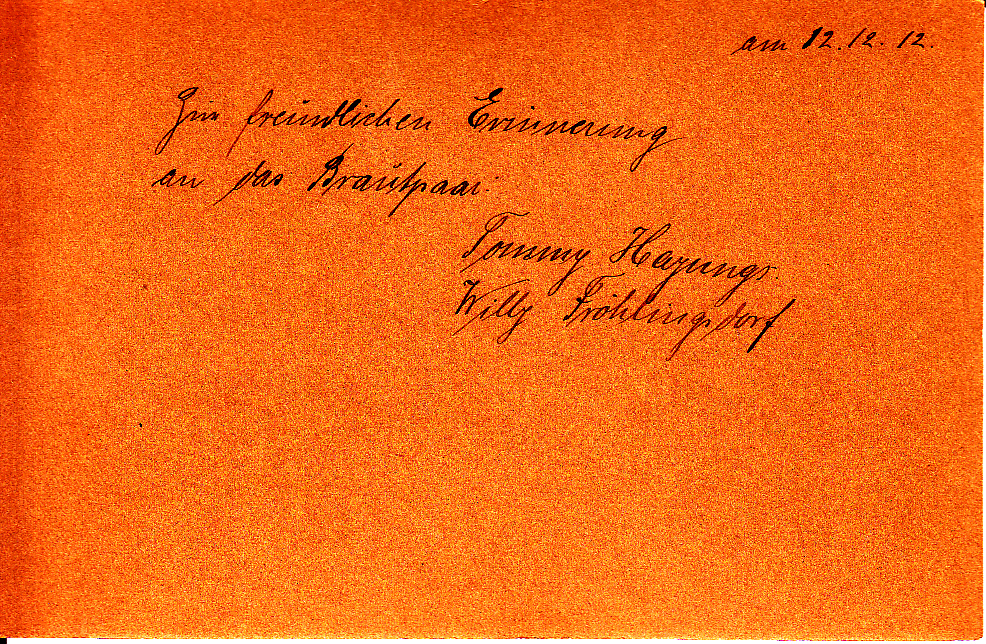 am 12.12.12.
Zur freundlichen Erinnerung
an das Brautpaar:
Tommy Hayungs.
Willy Fröhlingsdorf